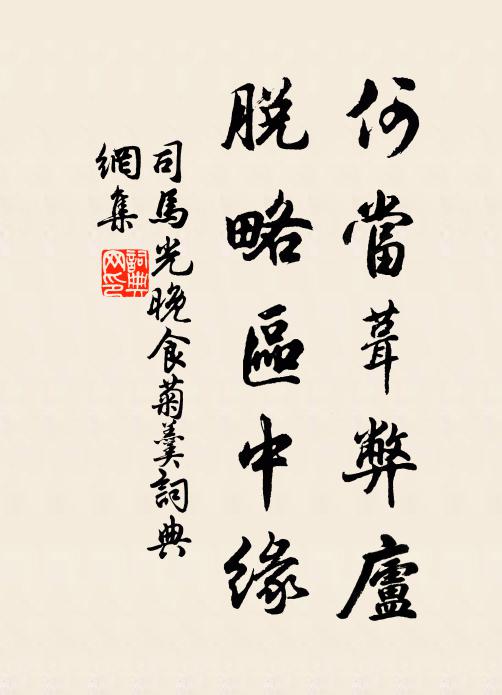 何當葺弊廬
脫略區中緣
司馬光晚食菊羹詞典
網集
詞典
网印